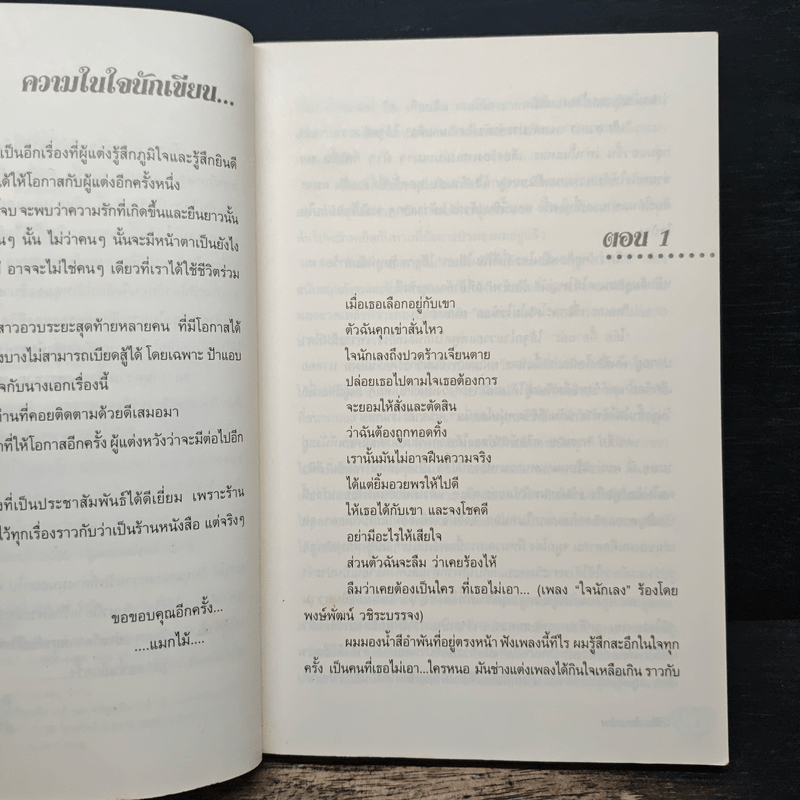 ความในใจนักเขียน...
เป็นอีกเรื่องที่ผู้แต่งรู้สึกภูมิใจและรู้สึกยินดี
ได้ให้โอกาสกับผู้แต่งอีกครั้งหนึ่ง
จบ จะพบว่าความรักที่เกิดขึ้นและยืนยาวนั้น
นั้น ไม่ว่าคนๆ นั้นจะมีหน้าตาเป็นยังไง
อาจจะไม่ใช่คนๆ เดียวที่เราได้ใช้ชีวิตร่วม
สาวอวบระยะสุดท้ายหลายคน ที่มีโอกาสได้
บางไม่สามารถเบียดสู้ได้ โดยเฉพาะ ป้าแอบ
จกับนางเอกเรื่องนี้
่านที่คอยติดตามด้วยดีเสมอมา
าที่ให้โอกาสอีกครั้ง ผู้แต่งหวังว่าจะมีต่อไปอีก
งที่เป็นประชาสัมพันธ์ได้ดีเยี่ยม เพราะร้าน
ไว้ทุกเรื่องราวกับว่าเป็นร้านหนังสือ แต่จริงๆ
ขอขอบคุณอีกครั้ง...
....แมกไม้....
ตอน 1
เมื่อเธอเลือกอยู่กับเขา
ตัวฉันคุกเข่าสั่นไหว
ใจนักเลงถึงปวดร้าวเจียนตาย
ปล่อยเธอไปตามใจเธอต้องการ
จะยอมให้สั่งและตัดสิน
ว่าฉันต้องถูกทอดทิ้ง
เรานั้นมันไม่อาจฝืนความจริง
ได้แต่ยิ้มอวยพรให้ไปดี
ให้เธอได้กับเขา และจงโชคดี
อย่ามีอะไรให้เสียใจ
ส่วนตัวฉันจะลืม ว่าเคยร้องไห้
ลืมว่าเคยต้องเป็นใคร ที่เธอไม่เอา... (เพลง “ใจนักเลง” ร้องโดย
พงษ์พัฒน์ วชิระบรรจง)
ผมมองน้ำสีอำพันที่อยู่ตรงหน้า ฟังเพลงนี้ทีไร ผมรู้สึกสะอึกในใจทุก
ครั้ง เป็นคนที่เธอไม่เอา...ใครหนอ มันช่างแต่งเพลงได้กินใจเหลือเกิน ราวกับ